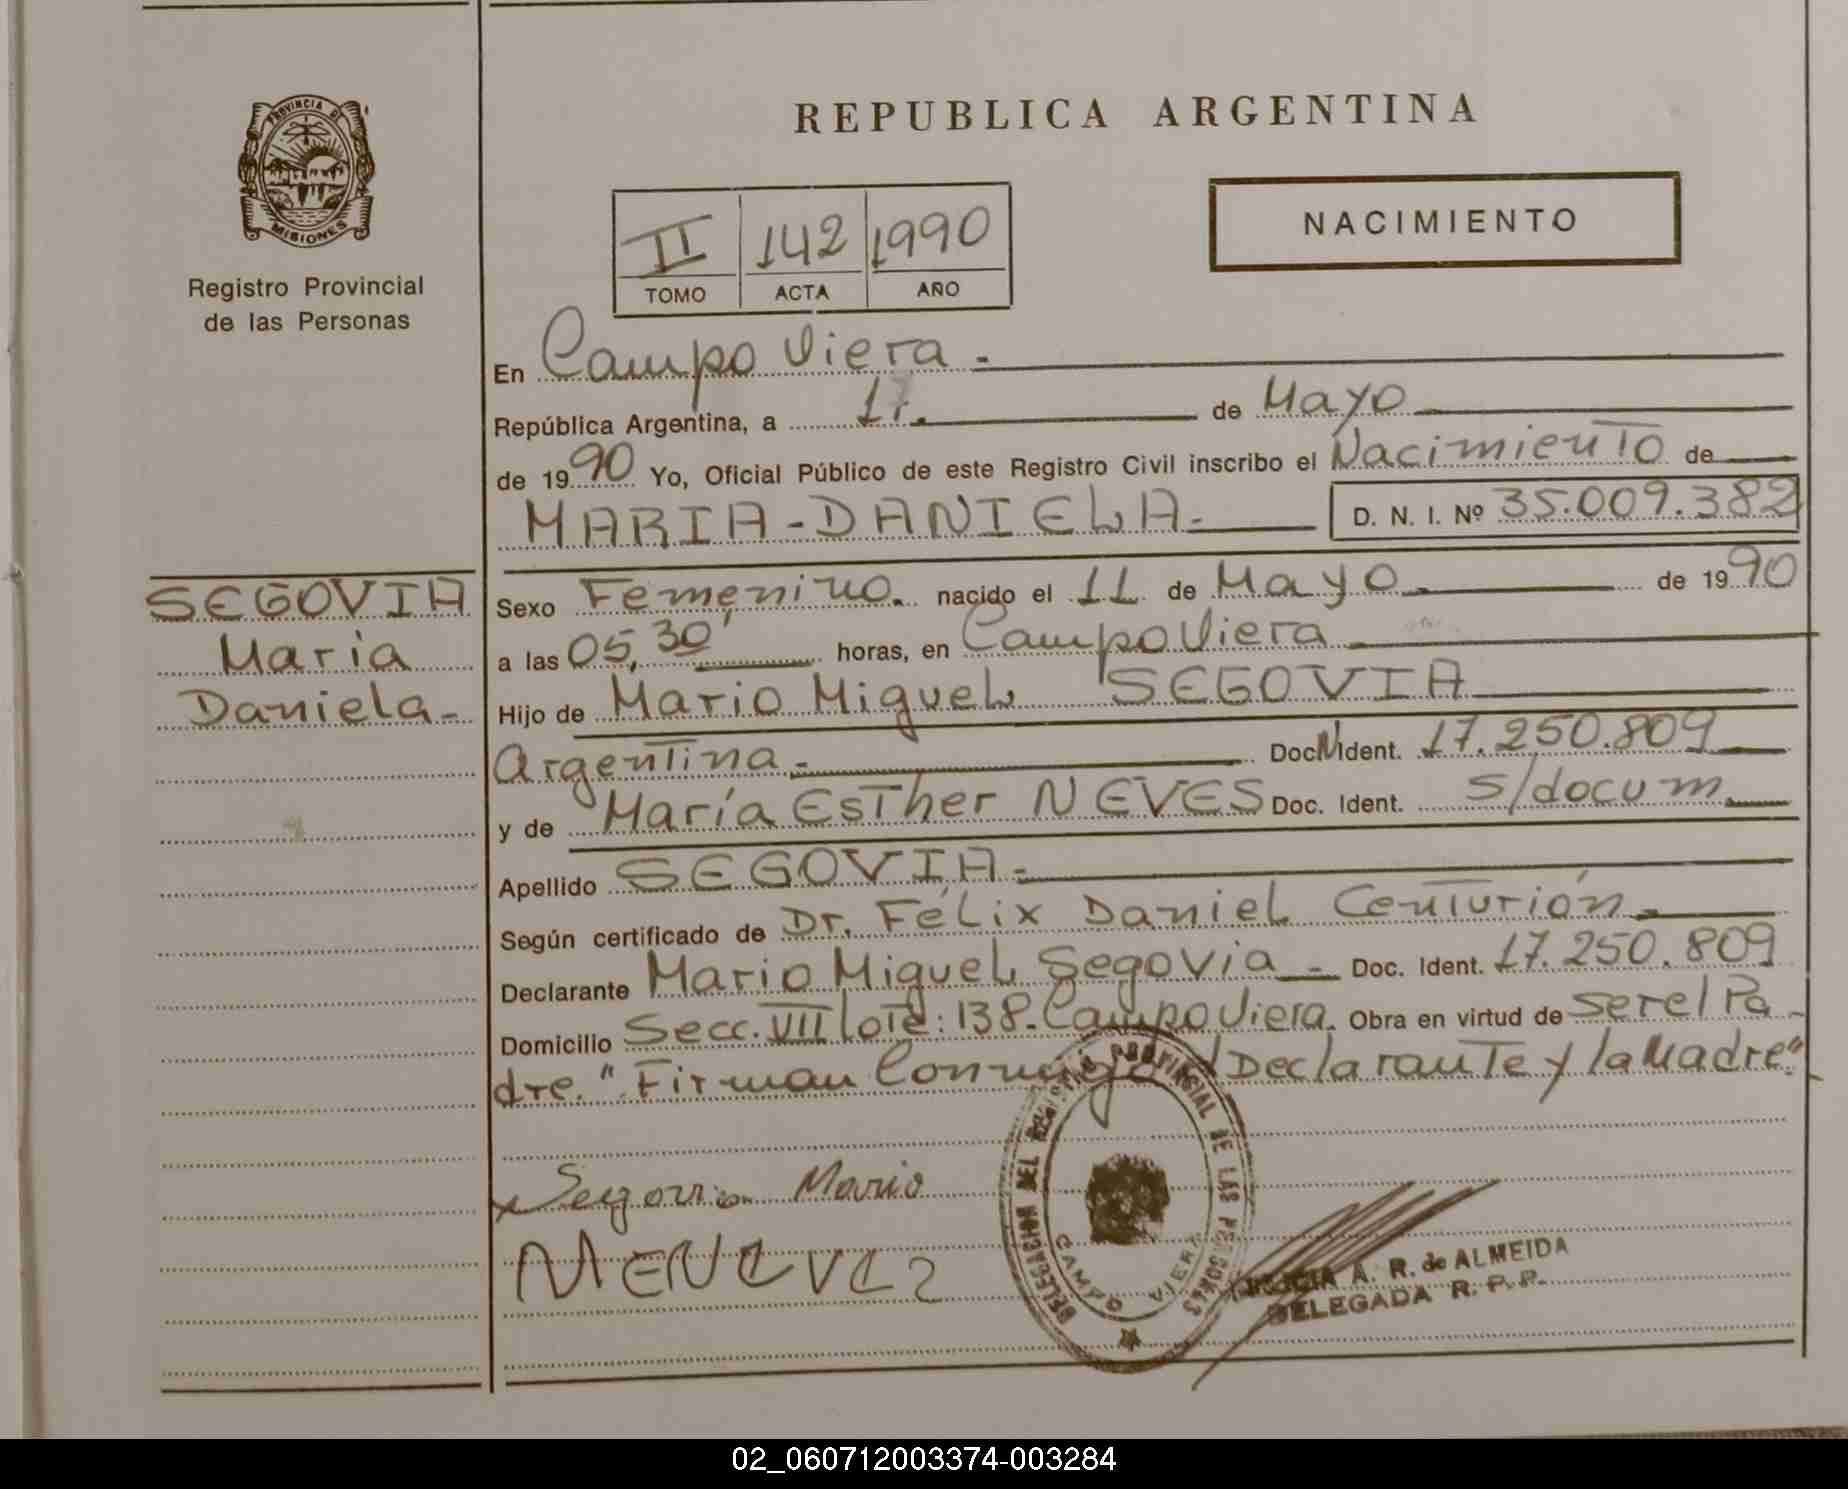 PROVINCIA DE
MISIONES
Registro Provincial
de las Personas
SEGOVIA
Maria
Daniela-
REPUBLICA ARGENTINA
NACIMIENTO
II 142 1990
TOMO ACTA AÑO
En Campo Viera -
República Argentina, a 17. de Mayo
de 1990 Yo, Oficial Público de este Registro Civil inscribo el Nacimiento de
MARIA-DANIELA- D. N. I. Nº 35.009.382
Sexo Femenino. nacido el 11 de Mayo de 1990
a las 05,30' horas, en Campo Viera
Hijo de Mario Miguel SEGOVIA
Argentina- Doc. Ident. 17.250.809
y de María Esther NEVES Doc. Ident. s/docum
Apellido SEGOVIA-
Según certificado de Dr. Félix Daniel Centurión
Declarante Mario Miguel Segovia - Doc. Ident. 17.250.809
Domicilio Secc. VII lote: 138-Campo Viera. Obra en virtud de ser el Pa-
dre. "Firman Conmigo Declarante y la Madre"
DELEGACION DEL REGISTRO PROVINCIAL DE LAS PERSONAS
CAMPO VIERA
x Segovia Mario
A. R. de ALMEIDA
DELEGADA R. P. P.
02_060712003374-003284